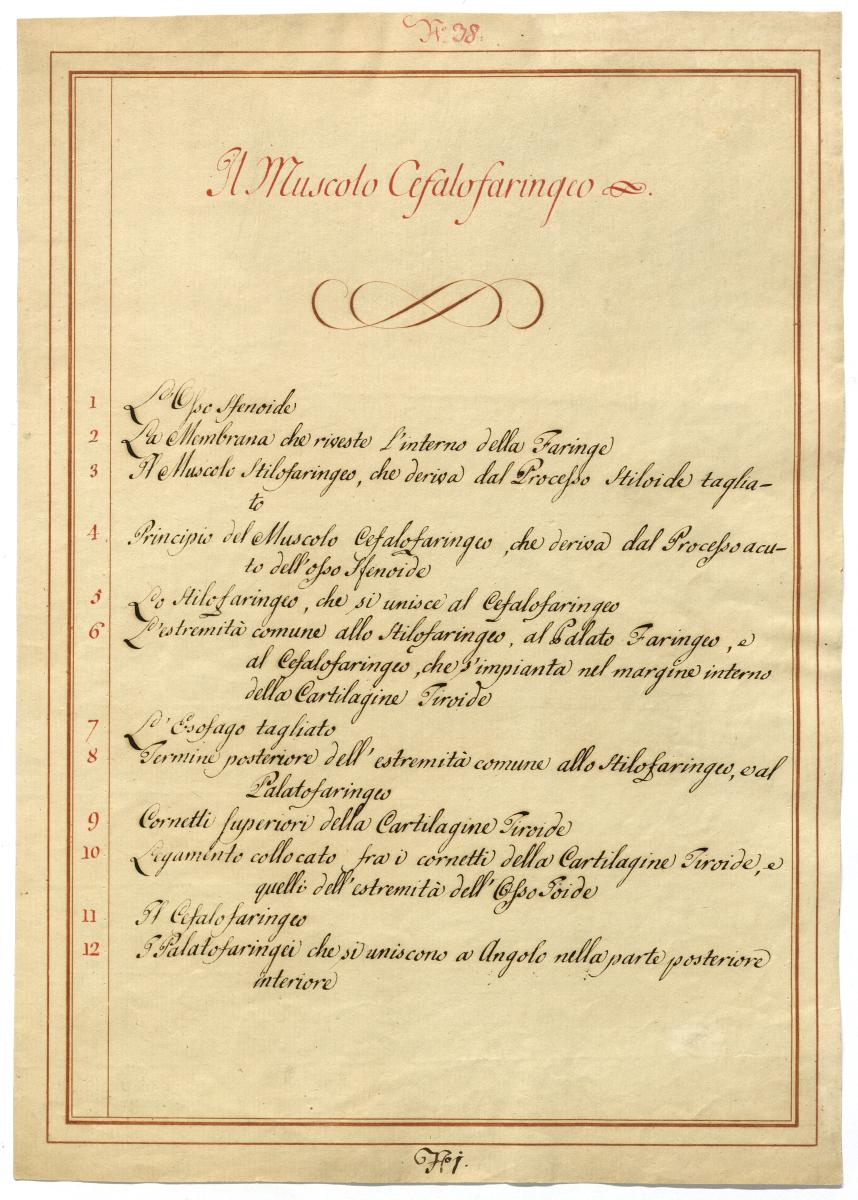 N.º 38.
Il Muscolo Cefalofaringeo
1 L'Osso Sfenoide
2 La Membrana che riveste l'interno della Faringe
3 Il Muscolo Stilofaringeo, che deriva dal Processo Stiloide taglia-
to
4 Principio del Muscolo Cefalofaringeo, che deriva dal Processo acu-
to dell'osso Sfenoide
5 Lo Stilofaringeo, che si unisce al Cefalofaringeo
6 L'estremità comune allo Stilofaringeo, al Palato Faringeo, e
al Cefalofaringeo, che s'impianta nel margine interno
della Cartilagine Tiroide
7 L'Esofago tagliato
8 Termine posteriore dell'estremità comune allo Stilofaringeo, e al
Palatofaringeo
9 Cornetti superiori della Cartilagine Tiroide
10 Legamento collocato fra i cornetti della Cartilagine Tiroide, e
quelli dell'estremità dell'Osso Ioide
11 Il Cefalofaringeo
12 I Palatofaringei che si uniscono a Angolo nella parte posteriore
interiore
Nº 1.